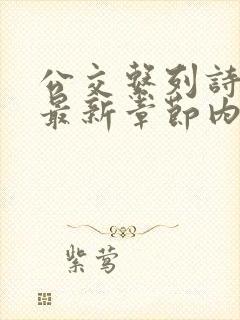 公交系列詩
最新章節內
紫莺